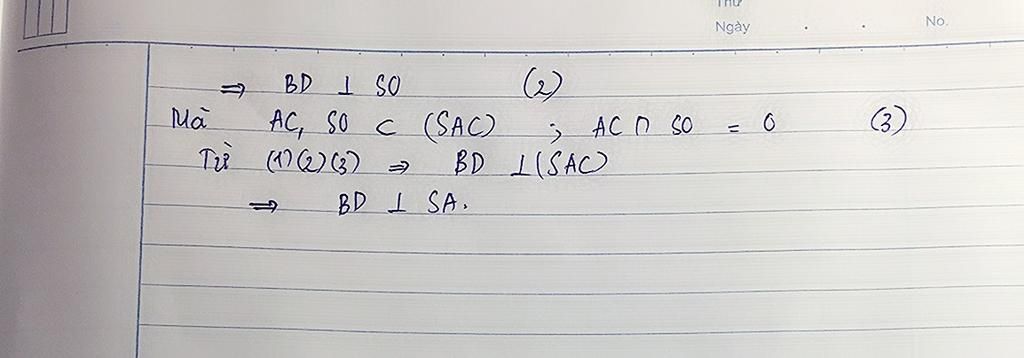 Thứ
Ngày . . No.
⇒ BD ⊥ SO (2)
Mà AC, SO ⊂ (SAC) ; AC ∩ SO = O (3)
Từ (1)(2)(3) ⇒ BD ⊥ (SAC)
⇒ BD ⊥ SA.